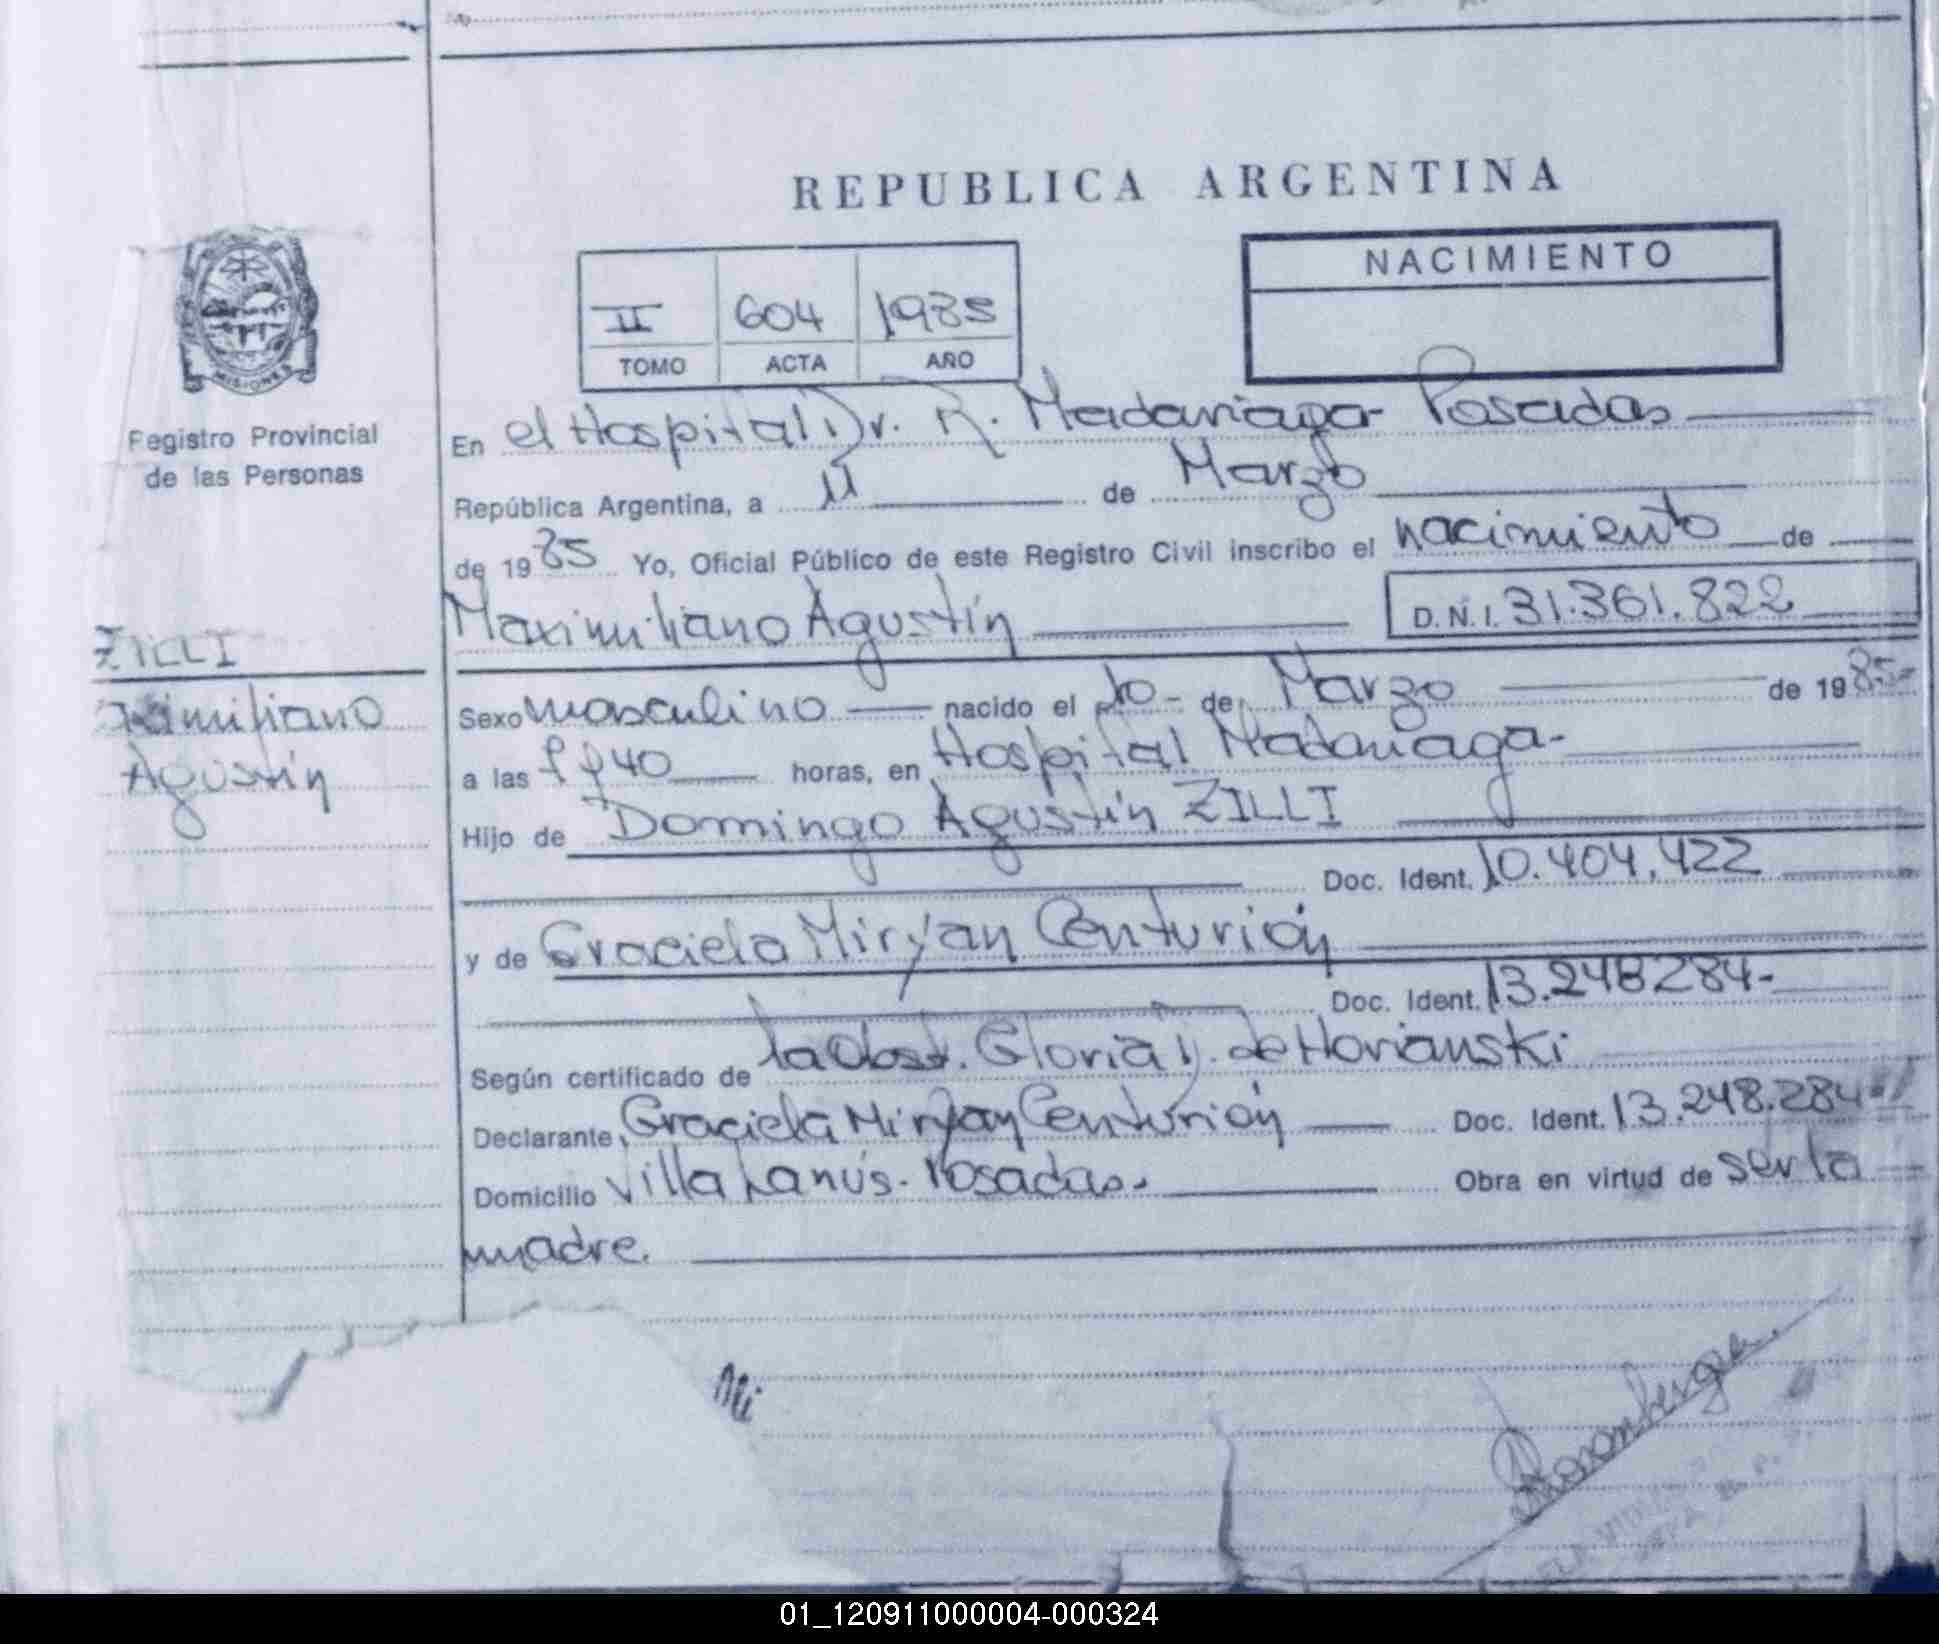 REPUBLICA ARGENTINA
NACIMIENTO
II 604 1985
TOMO ACTA AÑO
MISIONES
Registro Provincial
de las Personas
En el Hospital Dr. R. Madariaga Posadas
República Argentina, a 11 de Marzo
de 1985 Yo, Oficial Público de este Registro Civil inscribo el nacimiento de
Maximiliano Agustín D.N.I. 31.361.822
ZILLI
Maximiliano
Agustín
Sexo masculino nacido el 10 de Marzo de 1985
a las 40 horas, en Hospital Madariaga
Hijo de Domingo Agustín ZILLI
Doc. Ident. 10.404.422
y de Graciela Miryan Centurión
Doc. Ident. 13.248284-
Según certificado de la Obst. Gloria de Horianski
Declarante Graciela Miryan Centurión Doc. Ident. 13.248.284-
Domicilio Villa Lanús. Posadas. Obra en virtud de ser la
madre.
01_120911000004-000324